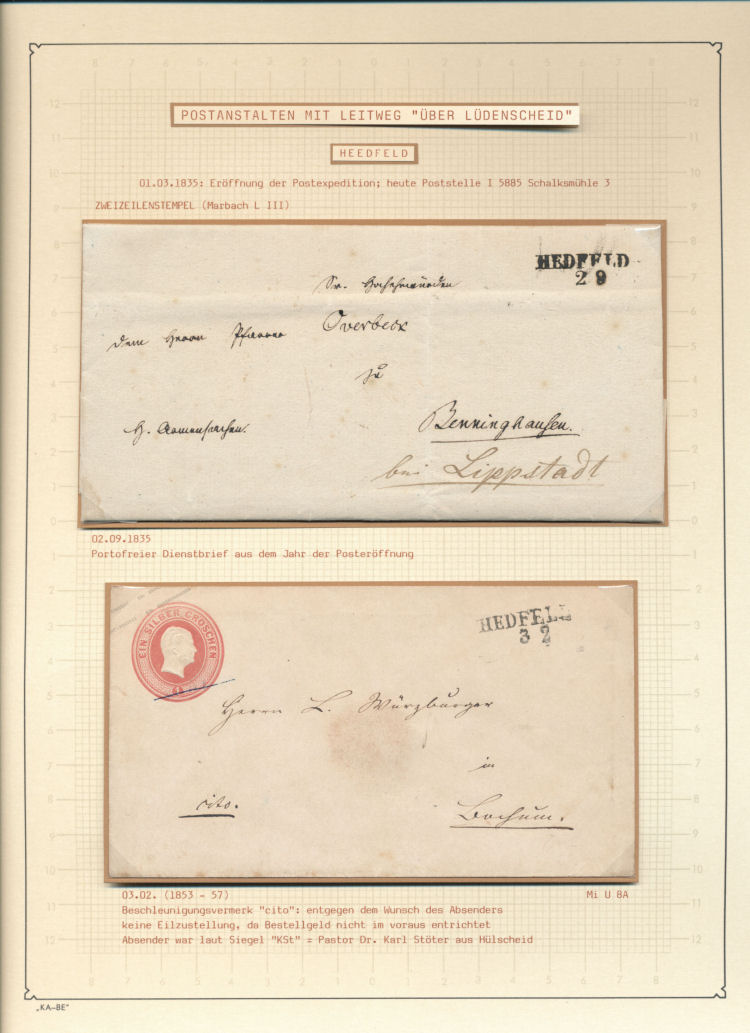 POSTANSTALTEN MIT LEITWEG "ÜBER LÜDENSCHEID"
HEEDFELD
01.03.1835: Eröffnung der Postexpedition; heute Poststelle I 5885 Schalksmühle 3
ZWEIZEILENSTEMPEL (Marbach L III)
HEDFELD
2 9
Sr. Hochehrwürden
dem Herrn Pfarrer Overbeck
zu
H. Armensachen. Benninghausen.
bei Lippstadt
02.09.1835
Portofreier Dienstbrief aus dem Jahr der Posteröffnung
EIN SILBER GROSCHEN
HEDFELD
3 2
Herrn L. Würzburger
in
cito. Bochum.
03.02. (1853 - 57) Mi U 8A
Beschleunigungsvermerk "cito": entgegen dem Wunsch des Absenders
keine Eilzustellung, da Bestellgeld nicht im voraus entrichtet
Absender war laut Siegel "KSt" = Pastor Dr. Karl Stöter aus Hülscheid
„KA-BE"